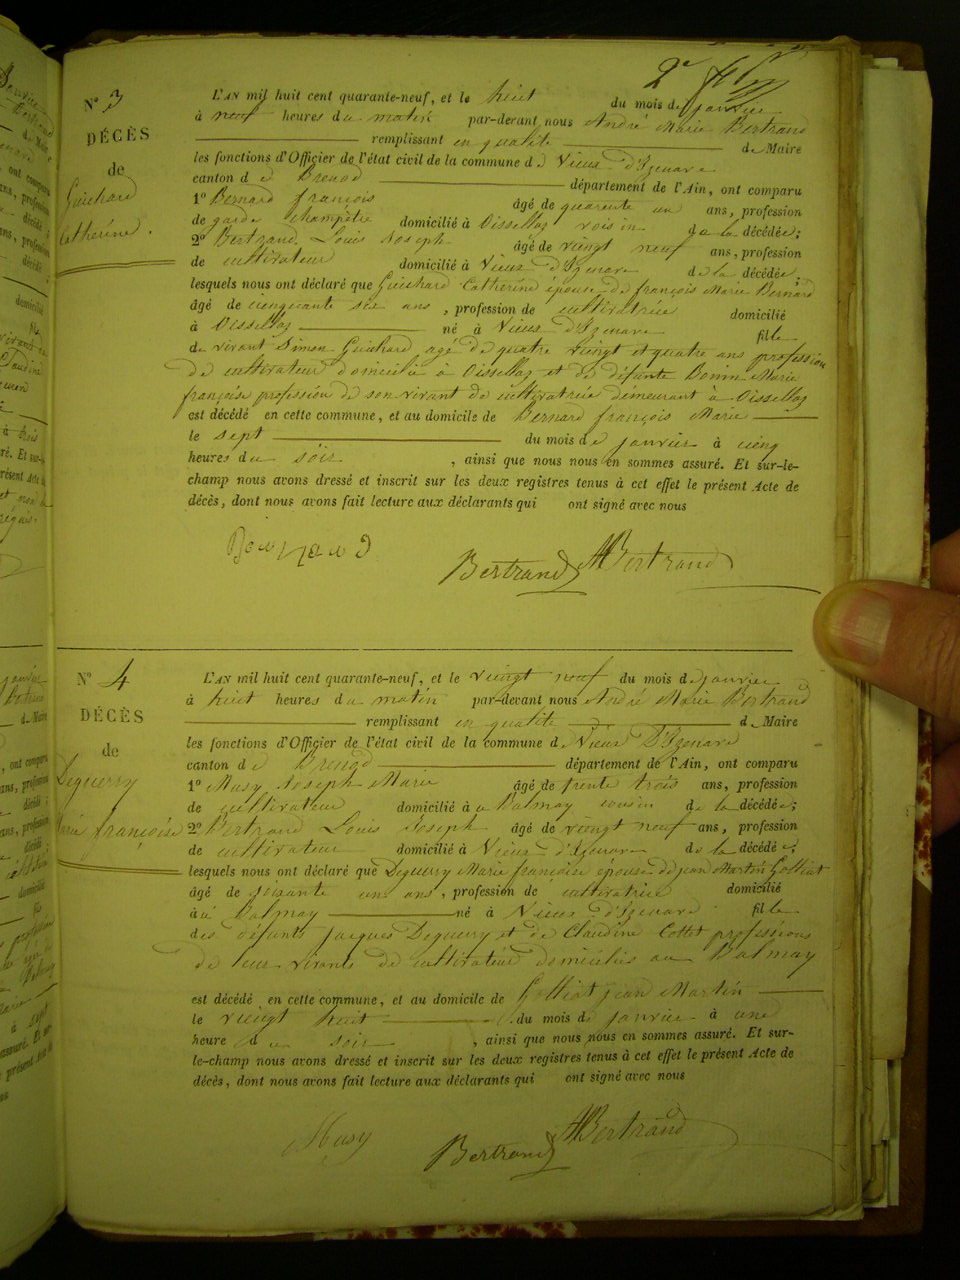 2e
N° 3
DÉCÈS
de
Guichard
Catherine.
L'AN mil huit cent quarante-neuf, et le huit du mois de janvier
à neuf heures du matin par-devant nous André Marie Bertrand
remplissant en qualité de Maire
les fonctions d'Officier de l'état civil de la commune d Vieux d'Izenave
canton d e Brenod département de l'Ain, ont comparu
1° Bernard françois âgé de quarente un ans, profession
de garde champêtre domicilié à Oissellaz voisin de la décédée;
2° Bertrand Louis Joseph âgé de viengt neuf ans, profession
de cultivateur domicilié à Vieux d'Izenave de la décédée,
lesquels nous ont déclaré que Guichard Catherine épouse de françois Marie Bernard
âgé de cienquante six ans, profession de cultivatrice domicilié
à Oissellaz né à Vieux d'Izenave fille
de vivant Simon Guichard agé de quatre viengt et quatre ans profession
de cultivateur domicilié à Oissellaz et de défunte Bonin Marie
françoise profession de son vivant de cultivatrice demeurant à Oissellaz
est décédé en cette commune, et au domicile de Bernard françois Marie
le sept du mois de janvier à cienq
heures du soir, ainsi que nous nous en sommes assuré. Et sur-le-
champ nous avons dressé et inscrit sur les deux registres tenus à cet effet le présent Acte de
décès, dont nous avons fait lecture aux déclarants qui ont signé avec nous
Bertrand ABertrand
N° 4
DÉCÈS
de
Deguerry
Marie françoise
L'AN mil huit cent quarante-neuf, et le vieingt neuf du mois d janvier
à huit heures du matin par-devant nous André Marie Bertrand
remplissant en qualité d Maire
les fonctions d'Officier de l'état civil de la commune d Vieux D'Izenave
canton d e Brenod département de l'Ain, ont comparu
1° Musy Joseph Marie âgé de trente trois ans, profession
de cultivateur domicilié à u Balmay cousin de la décédée;
2° Bertrand Louis Joseph âgé de vieingt neuf ans, profession
de cultivateur domicilié à Vieux d'Izenave de la décédée,
lesquels nous ont déclaré que Deguerry Marie françoise épouse de jean Martin Golliat
âgé de soixante un ans, profession de cultivatrice domicilié
au Balmay né à Vieux d'Izenave fille
des défunts Jacques Deguerry et de Claudine Cottet professions
de leur vivants de cultivateur domiciliés au Balmay
est décédé en cette commune, et au domicile de Golliat jean Martin
le vieingt huit du mois de janvier à une
heure du soir, ainsi que nous nous en sommes assuré. Et sur-
le-champ nous avons dressé et inscrit sur les deux registres tenus à cet effet le présent Acte de
décès, dont nous avons fait lecture aux déclarants qui ont signé avec nous
Musy Bertrand ABertrand